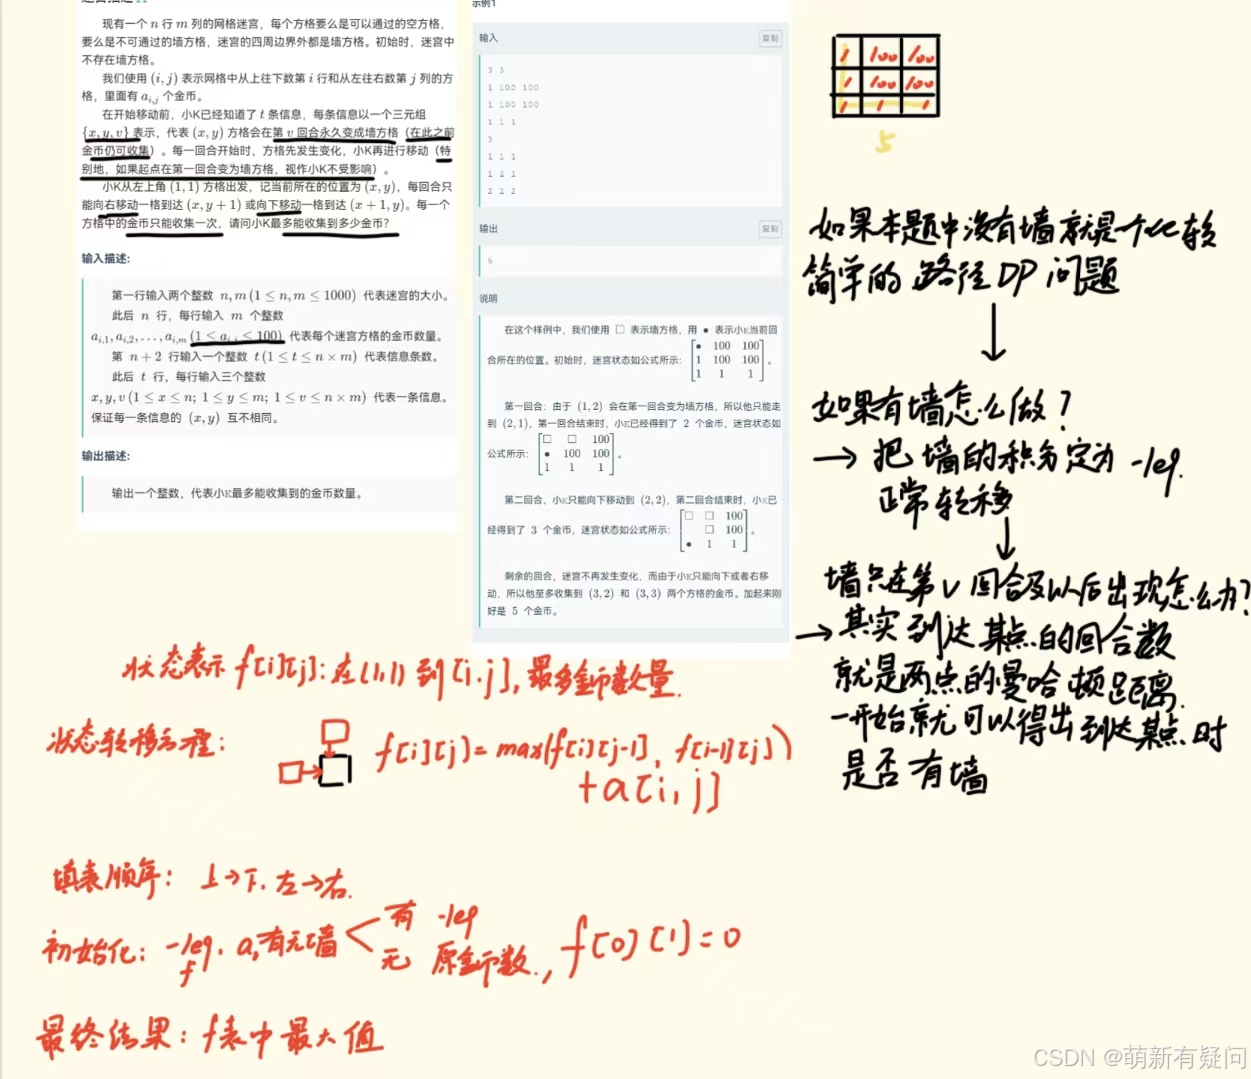 现有一个 n 行 m 列的网格迷宫,每个方格要么是可以通过的空方格,
要么是不可通过的墙方格,迷宫的四周边界外都是墙方格。初始时,迷宫中
不存在墙方格。
我们使用 (i, j) 表示网格中从上往下数第 i 行和从左往右数第 j 列的方
格,里面有 a_{i,j} 个金币。
在开始移动前,小K已经知道了 t 条信息,每条信息以一个三元组
{x, y, v} 表示,代表 (x, y) 方格会在第 v 回合永久变成墙方格(在此之前
金币仍可收集)。每一回合开始时,方格先发生变化,小K再进行移动(特
别地,如果起点在第一回合变为墙方格,视作小K不受影响)。
小K从左上角 (1, 1) 方格出发,记当前所在的位置为 (x, y),每回合只
能向右移动一格到达 (x, y+1) 或向下移动一格到达 (x+1, y)。每一个
方格中的金币只能收集一次,请问小K最多能收集到多少金币?
输入描述:
第一行输入两个整数 n, m (1 ≤ n, m ≤ 1000) 代表迷宫的大小。
此后 n 行,每行输入 m 个整数
a_{i,1}, a_{i,2}, ..., a_{i,m} (1 ≤ a_{i,j} ≤ 100) 代表每个迷宫方格的金币数量。
第 n+2 行输入一个整数 t (1 ≤ t ≤ n × m) 代表信息条数。
此后 t 行,每行输入三个整数
x, y, v (1 ≤ x ≤ n; 1 ≤ y ≤ m; 1 ≤ v ≤ n × m) 代表一条信息。
保证每一条信息的 (x, y) 互不相同。
输出描述:
输出一个整数,代表小K最多能收集到的金币数量。
示例1
输入
复制
3 3
1 100 100
1 100 100
1 1 1
3
1 1 1
1 2 1
2 2 2
输出
复制
5
说明
在这个样例中,我们使用 □ 表示墙方格,用 • 表示小K当前回
合所在的位置。初始时,迷宫状态如公式所示:
• 100 100
1 100 100
1 1 1
。
第一回合:由于 (1, 2) 会在第一回合变为墙方格,所以他只能走
到 (2, 1)。第一回合结束时,小K已经得到了 2 个金币,迷宫状态如
公式所示:
□ □ 100
• 100 100
1 1 1
。
第二回合、小K只能向下移动到 (2, 2),第二回合结束时,小K已
经得到了 3 个金币,迷宫状态如公式所示:
□ □ 100
□ 100
• 1 1
。
剩余的回合,迷宫不再发生变化,而由于小K只能向下或者右移
动,所以他至多收集到 (3, 2) 和 (3, 3) 两个方格的金币。加起来刚
好是 5 个金币。
1 100 100
1 100 100
1 1 1
5
如果本题中没有墙就是个比较
简单的路径DP问题
如果有墙怎么做?
→ 把墙的积分定为 -1e9.
正常转移
墙只在第v回合及以后出现怎么办?
→ 其实到达某点的回合数
就是两点的曼哈顿距离.
一开始就可以得出到达某点时
是否有墙
状态表示 f[i][j]: 在(1,1)到[i.j], 最多金币数量.
状态转移方程:
f[i][j] = max(f[i][j-1], f[i-1][j])
+a[i,j]
填表顺序: 上→下. 左→右.
初始化: -1e9. a,有无墙
f
有 -1e9
无 原金币数., f[0][1]=0
最终结果: f表中最大值
CSDN @萌新有疑问